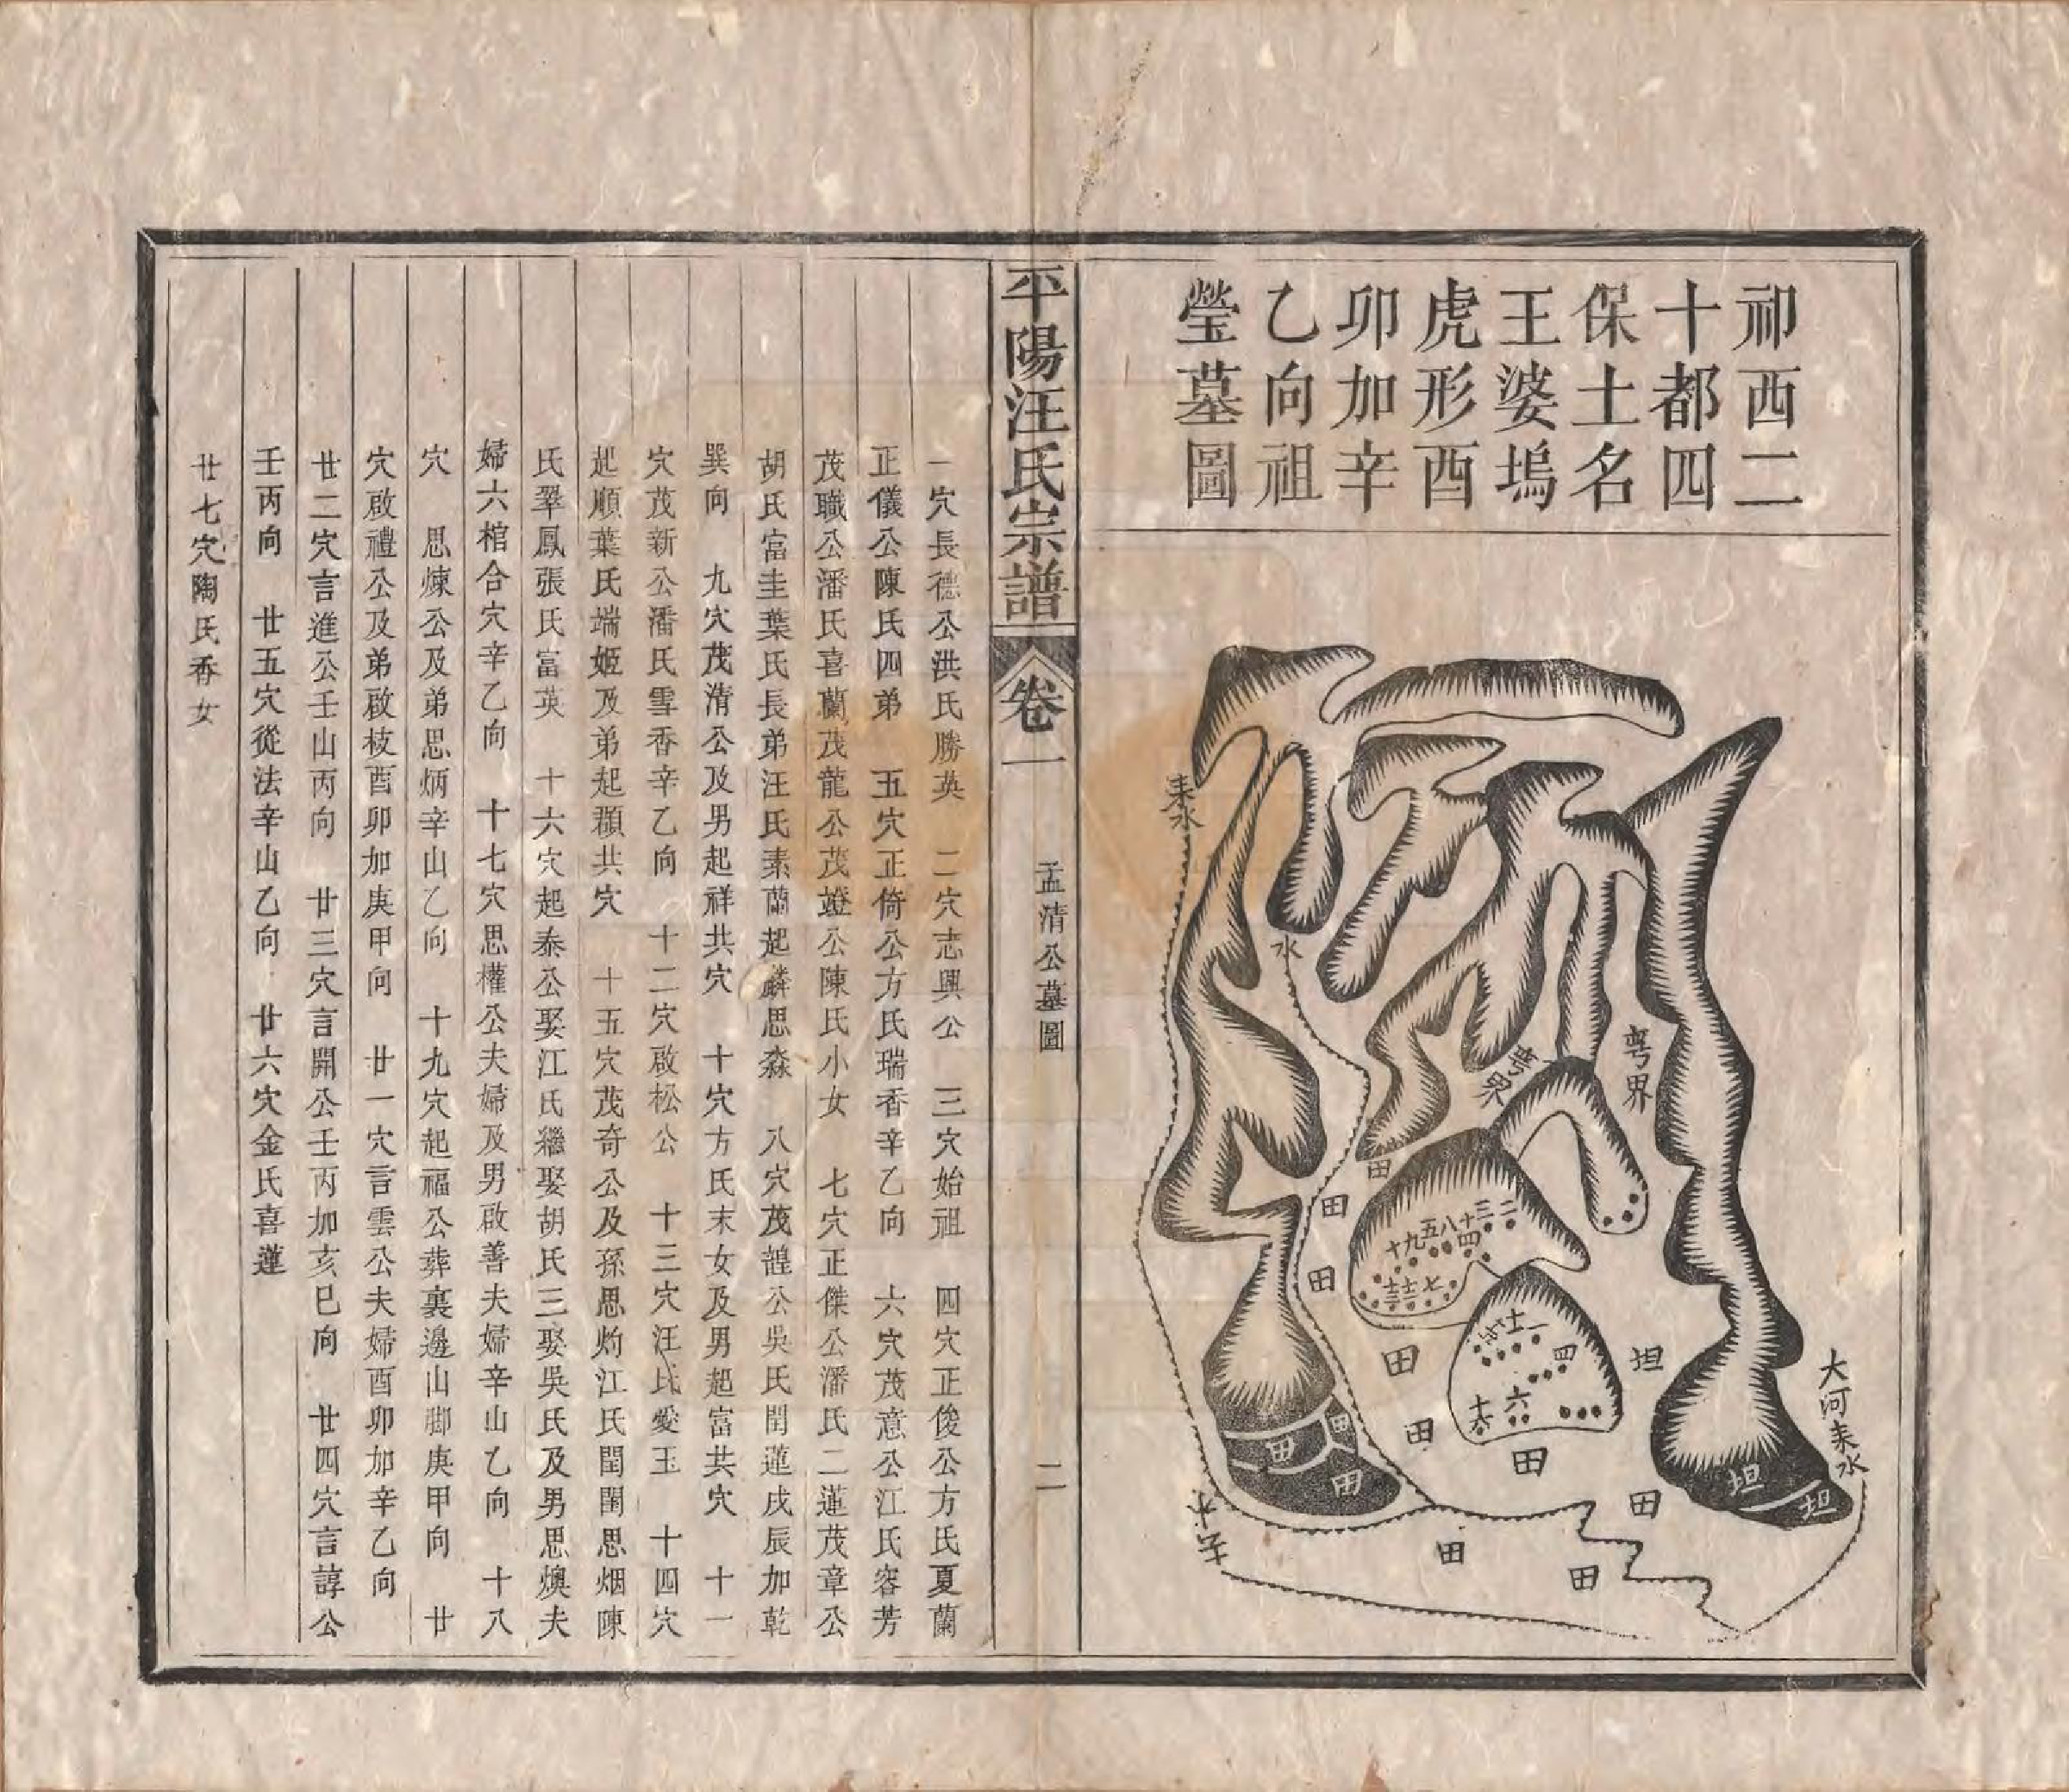 祁西二
十都四
保土名
王婆塢
虎形酉
卯加辛
乙向祖
瑩墓圖
大河来水
粤界
粤界
来水
水
去水
二三十八五九十
四
七
十一
四
六
坦
坦
坦
田
田
田
田
田
田
田
田
田
田
田
田
田
平陽汪氏宗譜
卷一
孟清公墓圖
二
一穴長德公洪氏勝英　二穴志興公　三穴始祖　四穴正俊公方氏夏蘭
正儀公陳氏四弟　五穴正倚公方氏瑞香辛乙向　六穴茂意公江氏容芳
茂職公潘氏喜蘭茂龍公茂證公陳氏小女　七穴正傑公潘氏二蓮茂章公
胡氏富圭葉氏長弟汪氏素蘭起麟思森　八穴茂韹公吳氏閏蓮戌辰加乾
巽向　九穴茂清公及男起祥共穴　十穴方氏末女及男起富共穴　十一
穴茂新公潘氏雪香辛乙向　十二穴啟松公　十三穴汪氏愛玉　十四穴
起順葉氏端姬及弟起顴共穴　十五穴茂奇公及孫思灼江氏閏閨思烟陳
氏翠鳳張氏富英　十六穴起泰公娶江氏繼娶胡氏三娶吳氏及男思燠夫
婦六棺合穴辛乙向　十七穴思權公夫婦及男啟善夫婦辛山乙向　十八
穴　思煉公及弟思炳辛山乙向　十九穴起福公葬裏邊山腳庚甲向　廿
穴啟禮公及弟啟枝酉卯加庚甲向　廿一穴言雲公夫婦酉卯加辛乙向
廿二穴言進公壬山丙向　廿三穴言開公壬丙加亥巳向　廿四穴言諄公
壬丙向　廿五穴從法辛山乙向　廿六穴金氏喜蓮
廿七穴陶氏香女